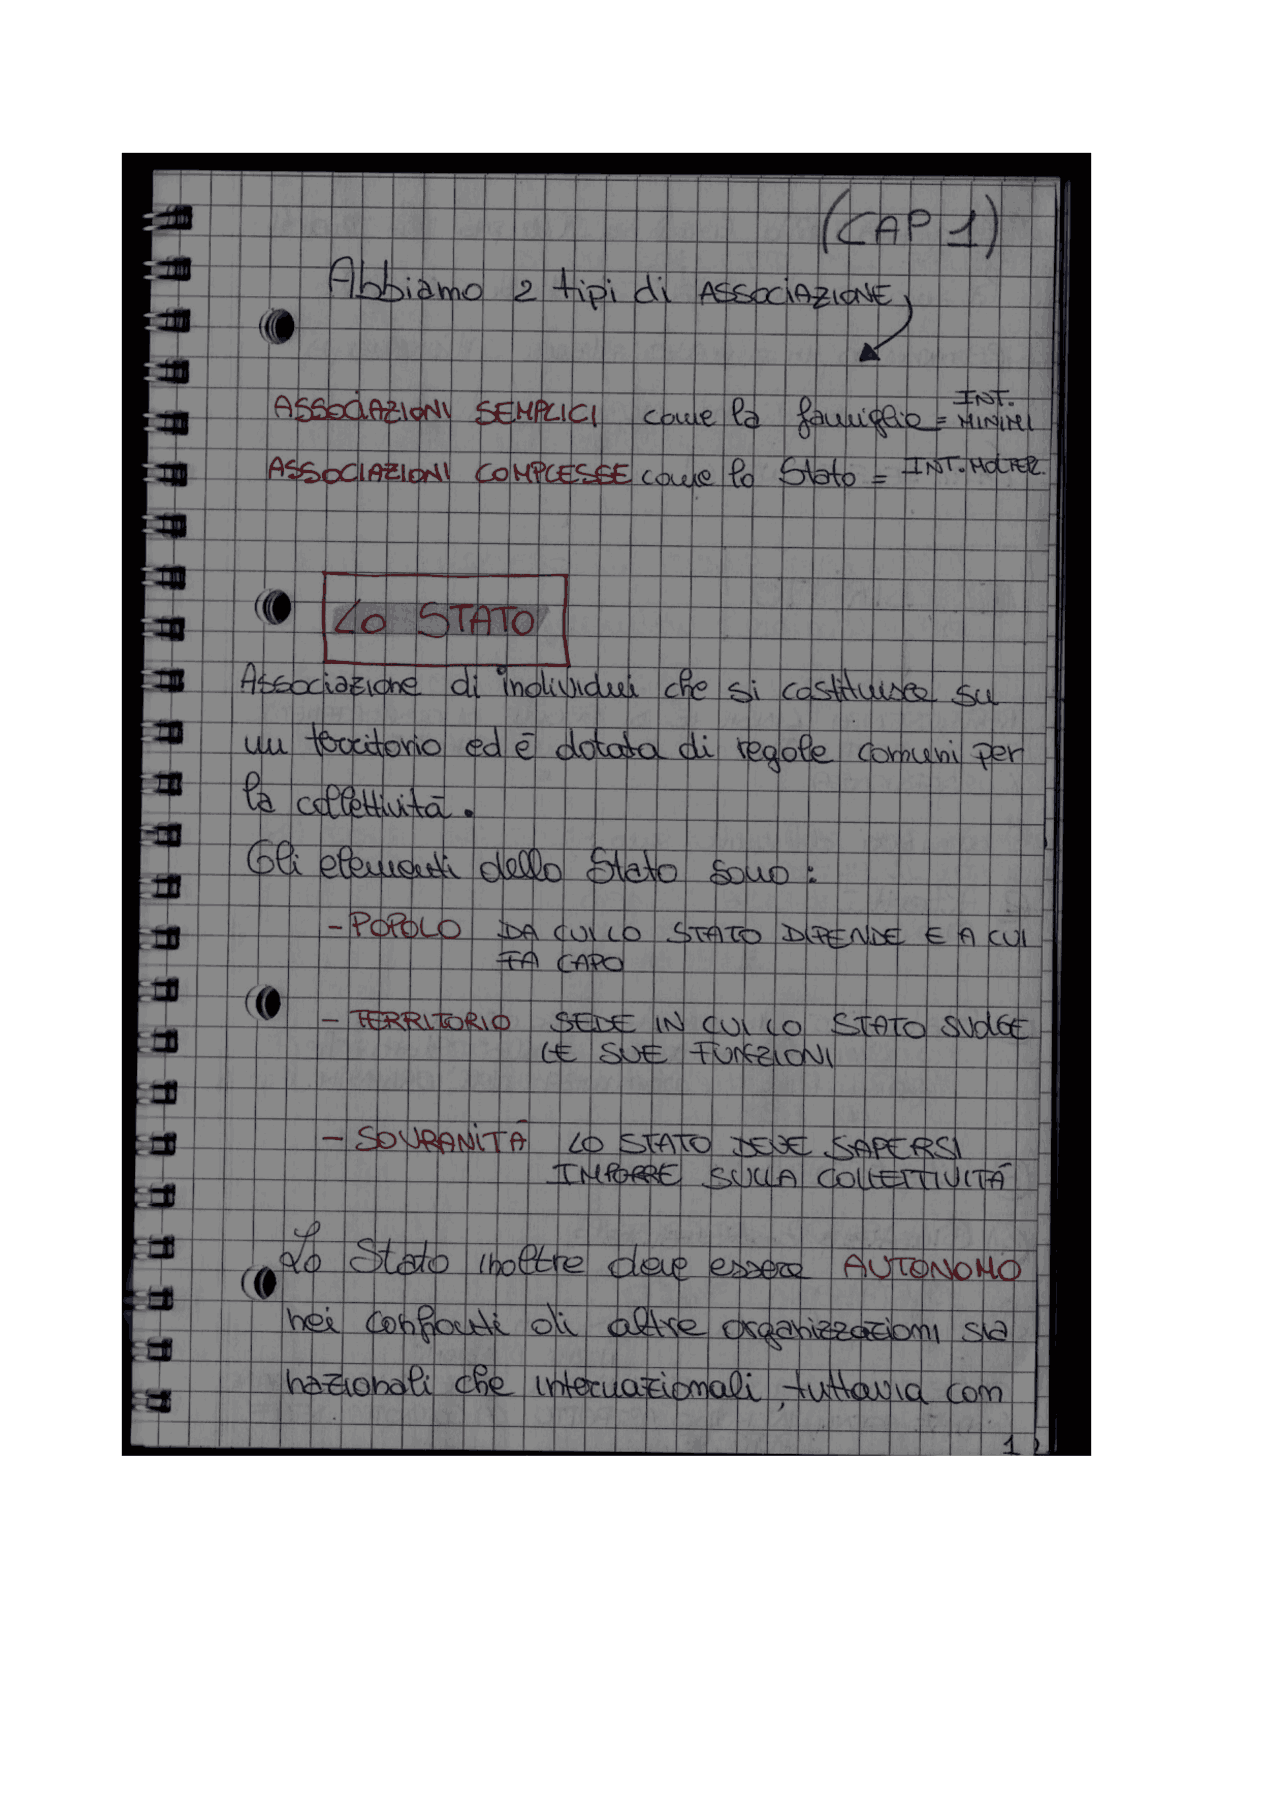 (CAP 1)
Abbiamo 2 tipi di ASSOCIAZIONE
ASSOCIAZIONI SEMPLICI come la famiglia = INT. MINIMI
ASSOCIAZIONI COMPLESSE come lo Stato = INT. MOLTEP.
LO STATO
Associazione di individui che si costituisce su
un territorio ed è dotata di regole comuni per
la collettività.
Gli elementi dello Stato sono :
- POPOLO DA CUI LO STATO DIPENDE E A CUI
FA CAPO
- TERRITORIO SEDE IN CUI LO STATO SVOLGE
LE SUE FUNZIONI
- SOVRANITÀ LO STATO DEVE SAPERSI
IMPORRE SULLA COLLETTIVITÀ
Lo Stato inoltre deve essere AUTONOMO
nei confronti di altre organizzazioni sia
nazionali che internazionali, tuttavia con
1